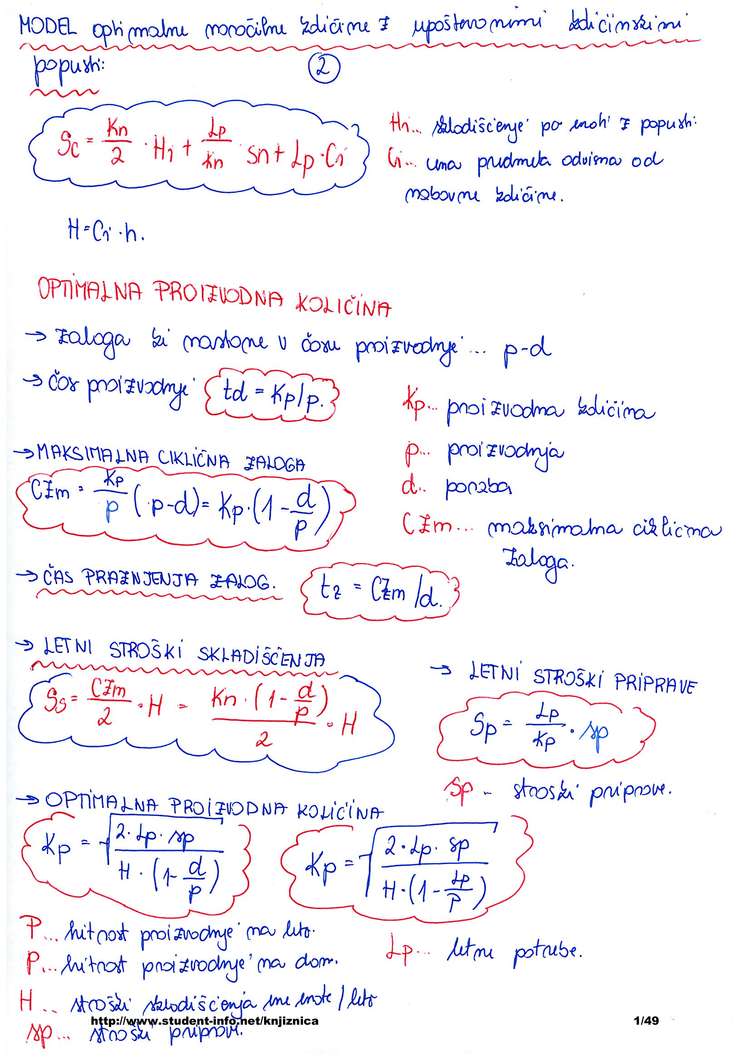 MODEL optimalne naročilne količine z upoštevanimi količinskimi
popusti:
2
Sc = Kn/2 · Hi + Lp/Kn · sn + Lp · Ci
Hi... skladiščenje po enoti z popusti.
Ci... cena predmeta odvisna od
nabavne količine.
H = Ci · h.
OPTIMALNA PROIZVODNA KOLIČINA
→ Zaloga ki nastane v času proizvodnje ... p-d
→ čas proizvodnje td = Kp/p.
Kp... proizvodna količina
p... proizvodnja
d.. poraba
CZm... maksimalna ciklična
zaloga.
→ MAKSIMALNA CIKLIČNA ZALOGA
CZm = Kp/p (p-d) = Kp · (1 - d/p)
→ ČAS PRAZNJENJA ZALOG. tz = CZm/d.
→ LETNI STROŠKI SKLADIŠČENJA
Ss = CZm/2 · H = Kn · (1 - d/p)/2 · H
→ LETNI STROŠKI PRIPRAVE
Sp = Lp/Kp · sp
sp - stroški priprave.
→ OPTIMALNA PROIZVODNA KOLIČINA
Kp = √(2 · Lp · sp / H · (1 - d/p))
Kp = √(2 · Lp · sp / H · (1 - Lp/P))
P... hitrost proizvodnje na leto.
p... hitrost proizvodnje na dan.
Lp... letne potrebe.
H... stroški skladiščenja ene enote / leto
sp... stroški priprave.
http://www.student-info.net/knjiznica
1/49